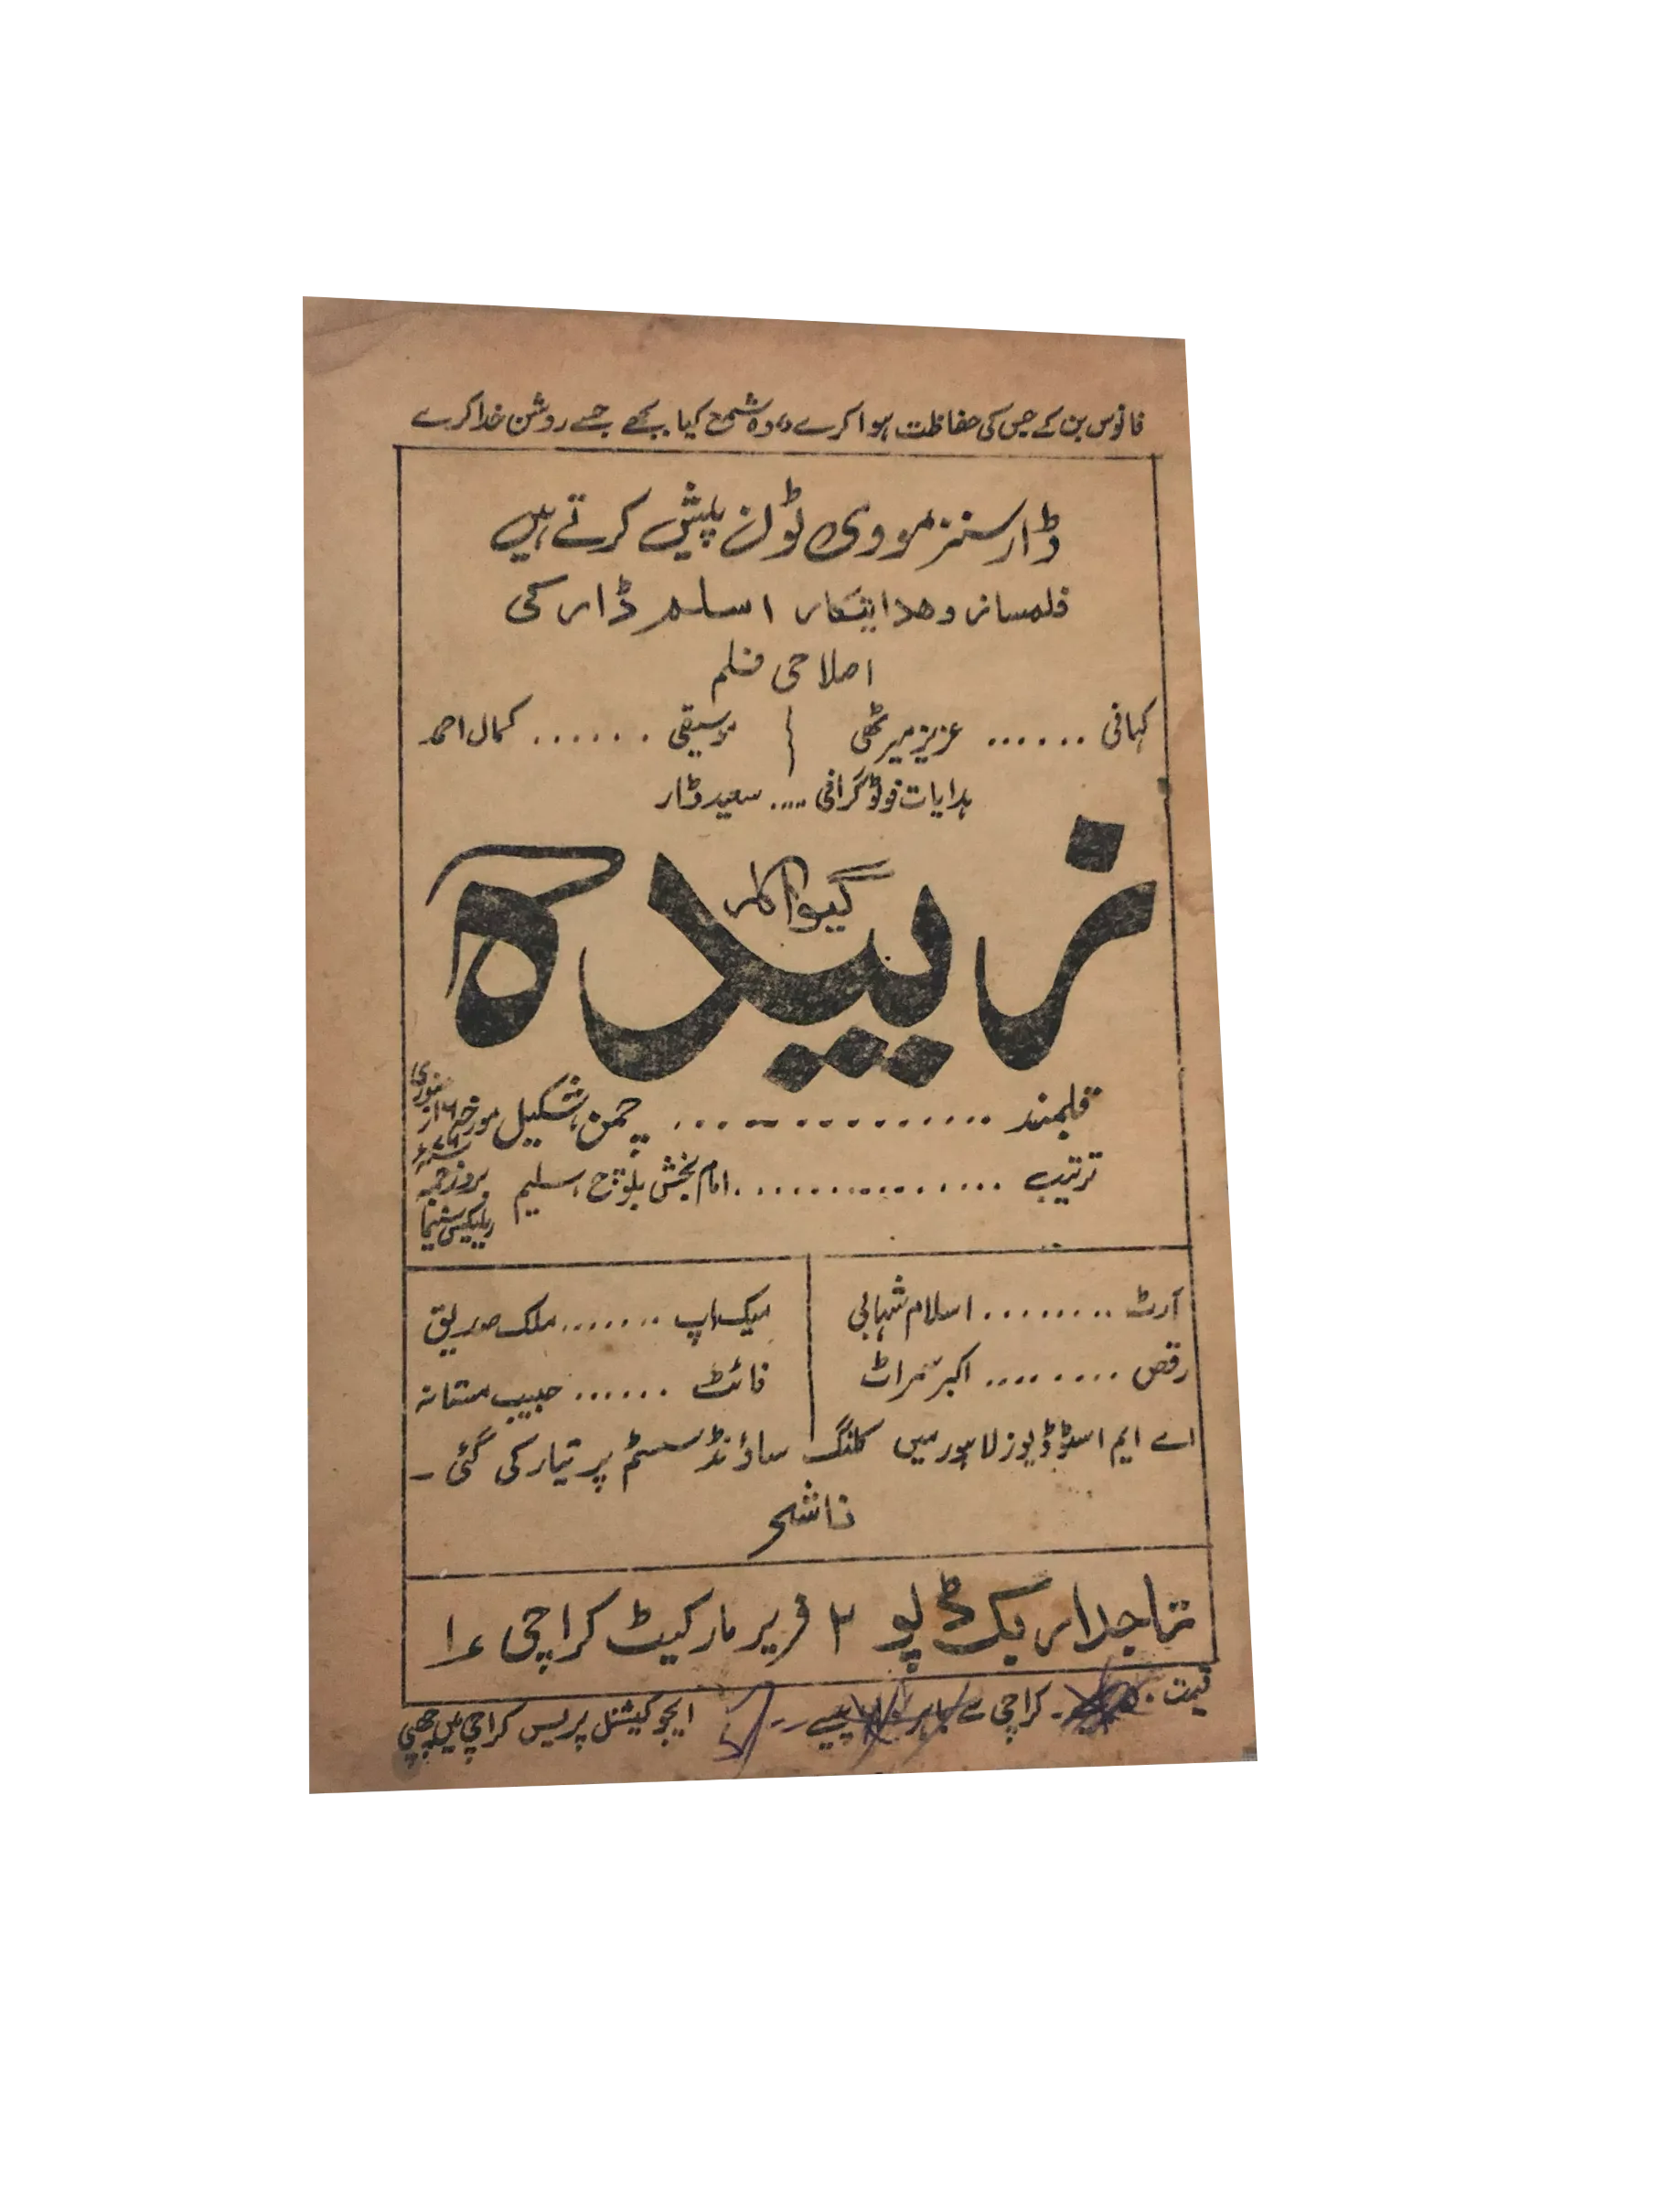 فانوس بن کے جس کی حفاظت ہوا کرے ، وہ شمع کیا بجھے جسے روشن خدا کرے
ڈار سنز مووی ٹون پیش کرتے ہیں
فلمساز و ھدایتکار اسلم ڈار کی
اصلاحی فلم
کہانی ...... عزیز میرٹھی موسیقی ...... کمال احمد
ہدایات فوٹوگرافی ..... سعید ڈار
زبیدہ
گیوا کلر
قلمبند ............... چمن، شکیل
مورخہ ۱۶ از جنوری
ترتیب ............... امام بخش بلوچ، سلیم
بروز جمعہ
ریلیکس سینما
آرٹ ........ اسلام شہابی میک اپ ....... ملک صدیق
رقص ......... اکبر سمراٹ فائٹ ...... حبیب مستانہ
اے ایم اسٹوڈیوز لاہور میں کلنگ ساؤنڈ سسٹم پر تیار کی گئی ۔
ناشر
تاجدار بک ڈپو ۲ فریر مارکیٹ کراچی ۱
قیمت کراچی سے باہر پیسے ایجوکیشنل پریس کراچی میں چھپی